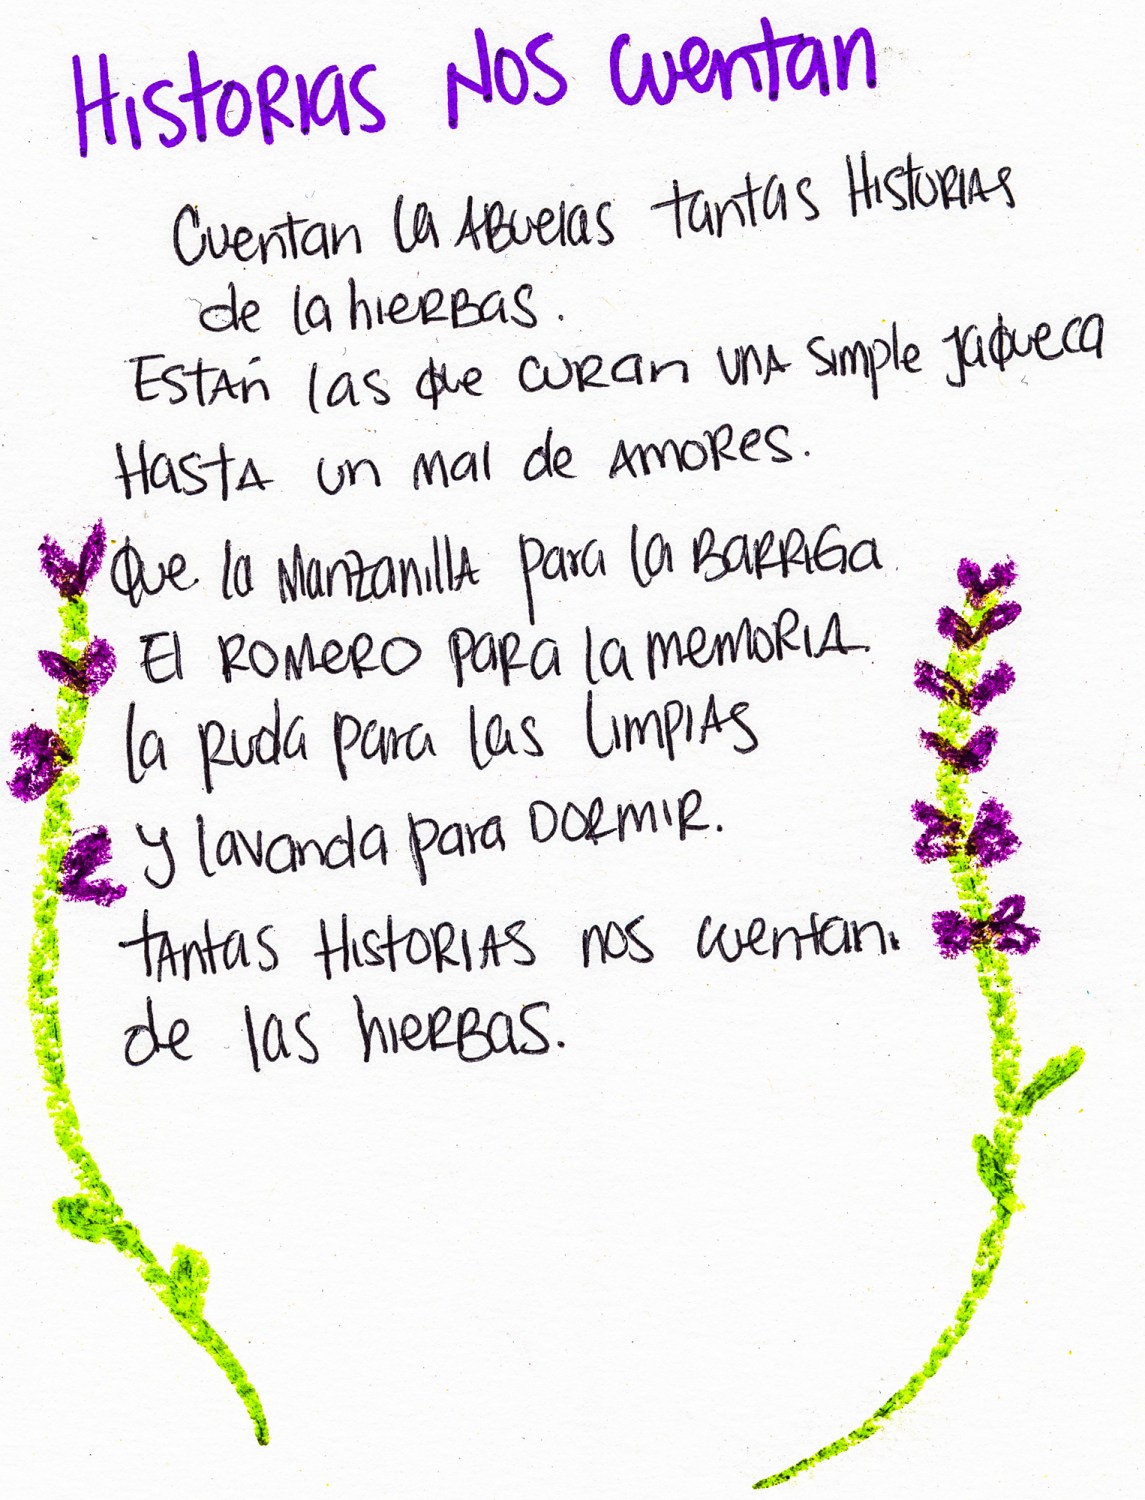 Historias nos cuentan
Cuentan la Abuelas tantas Historias
de la hierbas.
Están las que curan una simple jaqueca
Hasta un mal de amores.
Que la Manzanilla para la Barriga
El Romero para la memoria
la ruda para las limpias
y lavanda para Dormir.
tantas Historias nos cuentan.
de las hierbas.